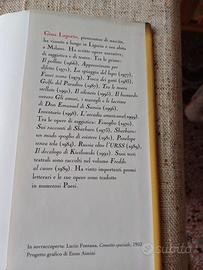 Gina Lagorio, piemontese di nascita,
ha vissuto a lungo in Liguria e ora abita
a Milano. Ha scritto opere narrative,
di saggistica e di teatro. Tra le prime:
Il polline (1966), Approssimato per
difetto (1971), La spiaggia del lupo (1977),
Fuori scena (1979), Tosca dei gatti (1983),
Golfo del Paradiso (1987), Tra le mura
stellate (1991), Il silenzio (1993), Il bastardo
ovvero Gli amori, i travagli e le lacrime
di Don Emanuel di Savoia (1996),
Inventario (1997), L'arcadia americana (1999).
Tra le opere di saggistica: Fenoglio (1970),
Sui racconti di Sbarbaro (1973), Sbarbaro:
un modo spoglio di esistere (1981), Penelope
senza tela (1984), Russia oltre l'URSS (1989),
Il decalogo di Kieslowski (1992). Suoi testi
teatrali sono raccolti nel volume Freddo
al cuore (1989). Ha vinto importanti premi
letterari e le sue opere sono tradotte
in numerosi Paesi.
In sovraccoperta: Lucio Fontana, Concetto spaziale, 1962
Progetto grafico di Enzo Aimini
Subito